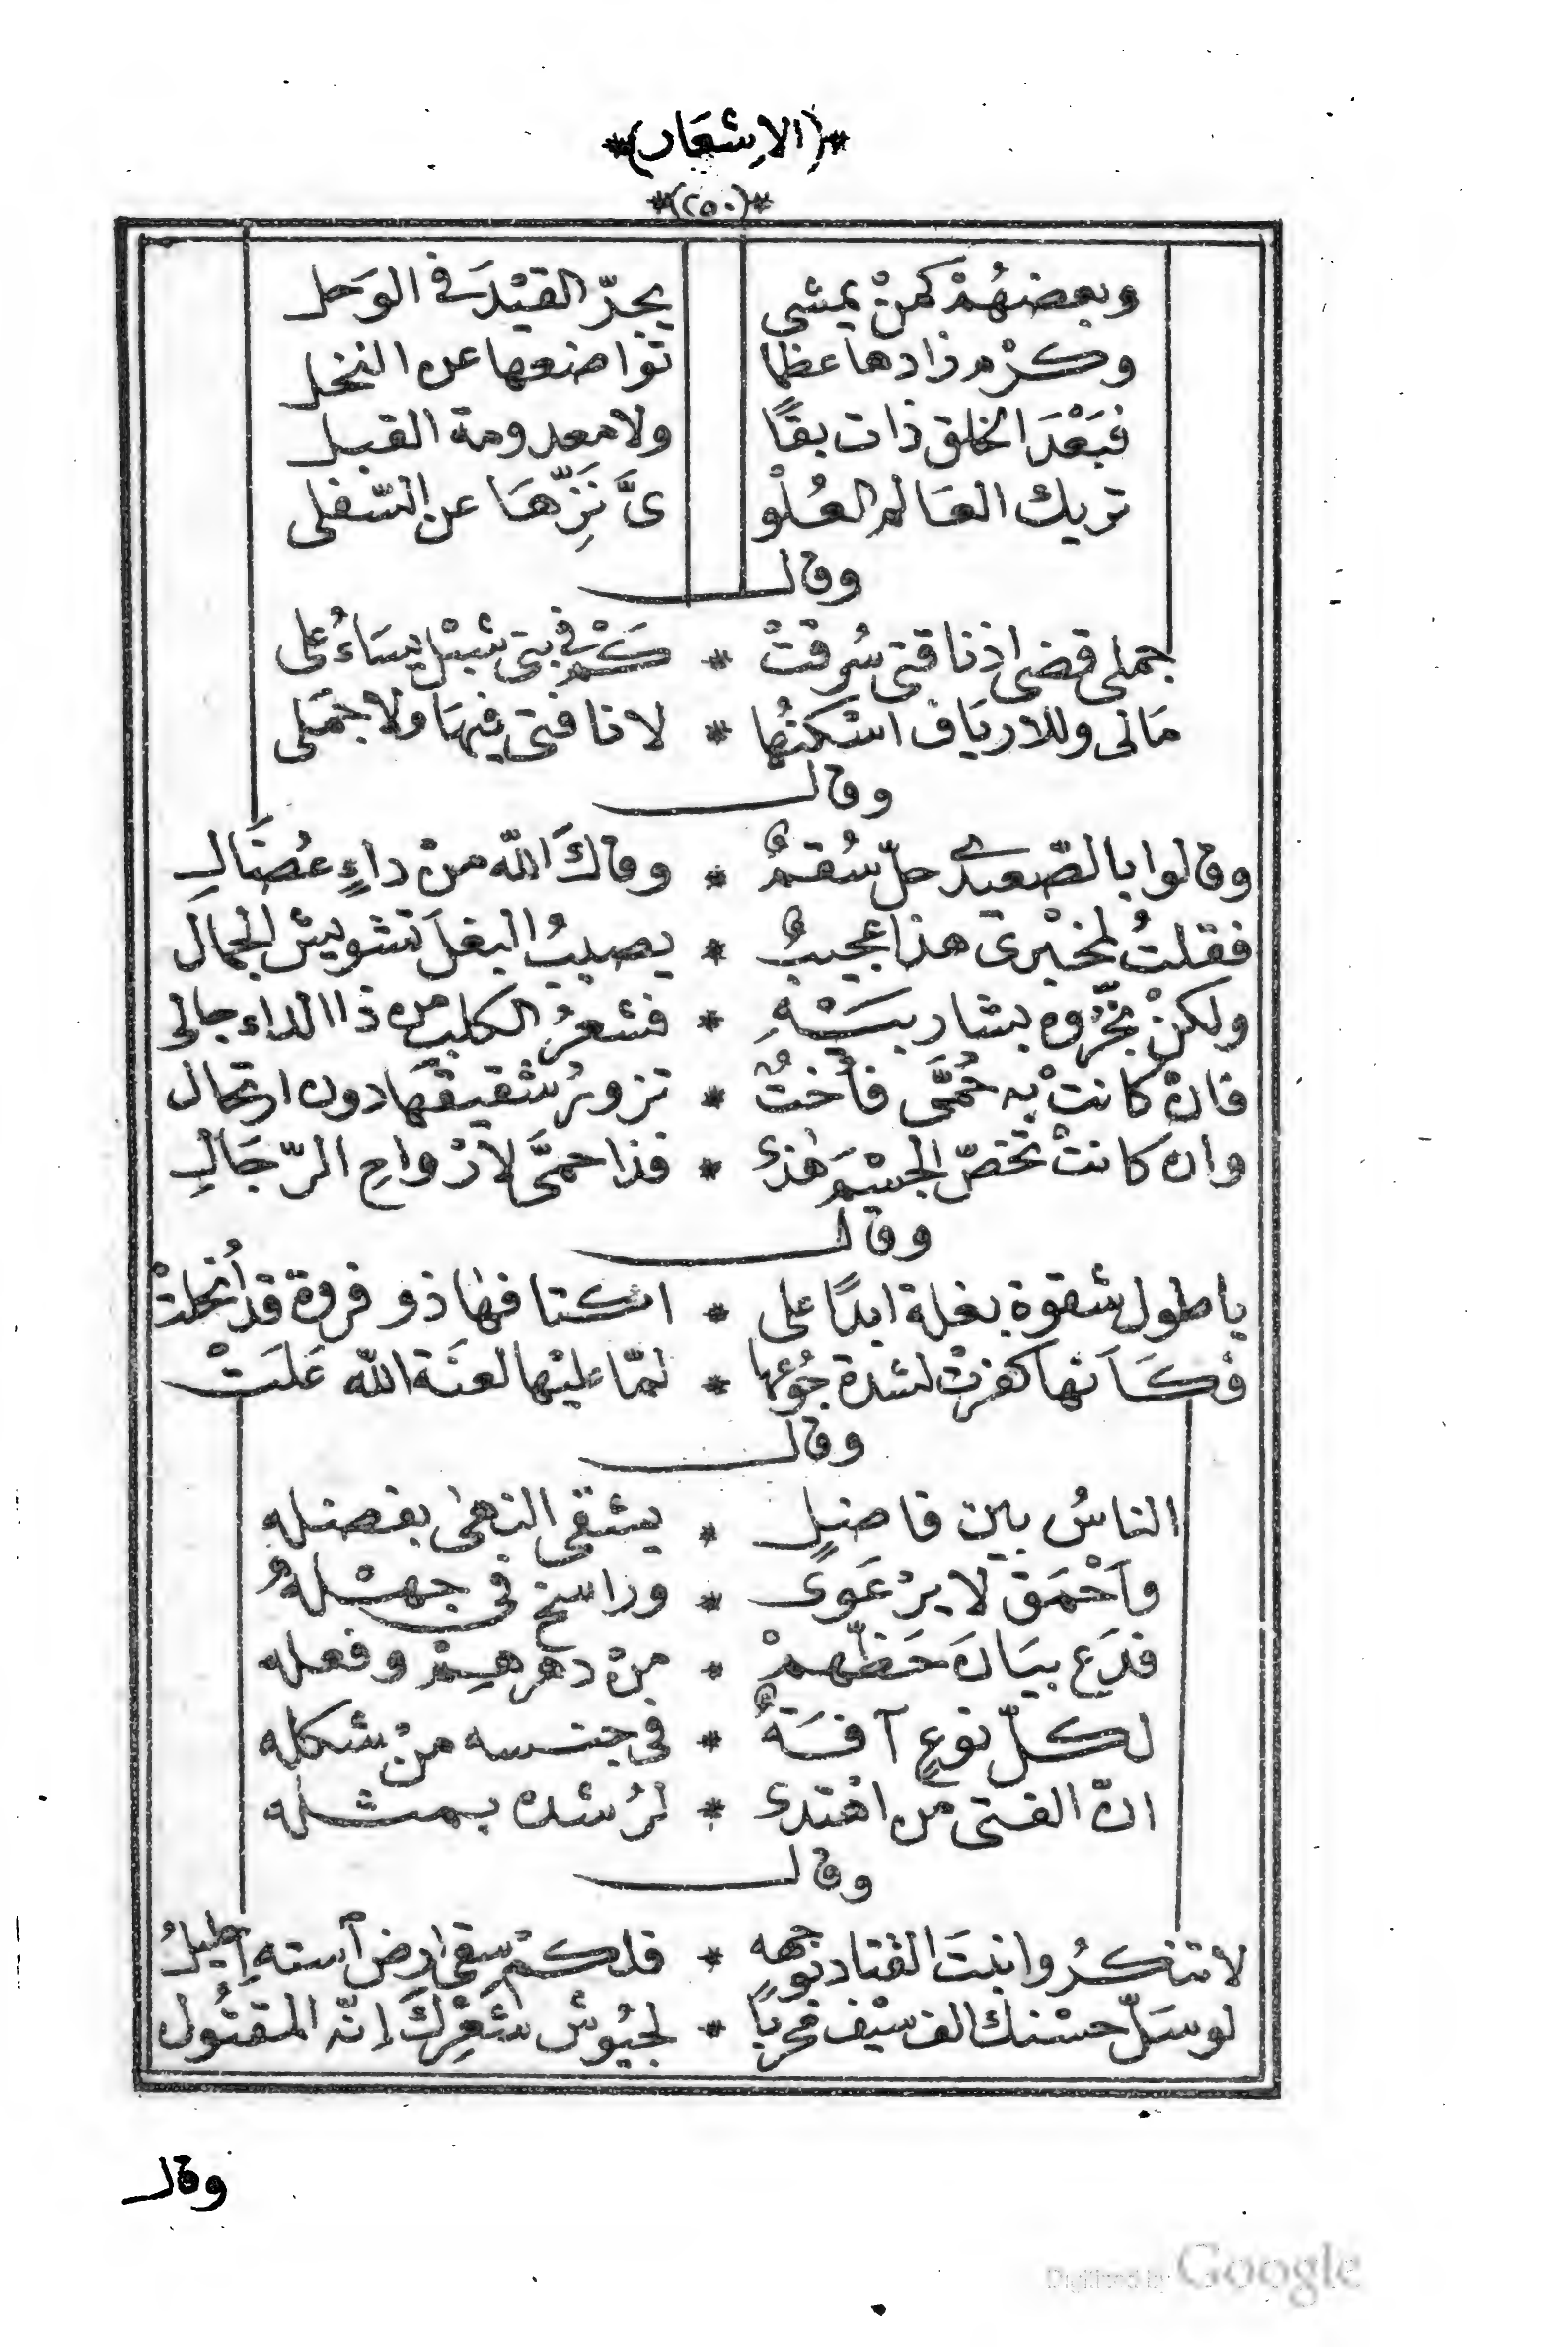 *(الاِشعَار)*
*(٢٥٠)*
وبعضهُمْ كمنْ يمشى يجرّ القيْدَ فى الوَحل
وكرْم زادها عظما تواضعها عن النخل
فبَعْدَ الخلق ذات بقًا ولا معدومة القبل
تريك العَالم العُلْو ىَّ نَزِّهَا عن السّفلى
وقال
جملى قضى اذ ناقتى سُرقتْ * كمْ فى بنى شبْل يسَاءُ على
مَالى وللاريَاف اسْكنُها * لا ناقتى فيهَا ولا جمَلى
وقال
وقالوا بالصّعيدى حلّ سُقمٌ * وقاكَ الله منْ داءٍ عُضَالِ
فقلتُ لمخبْرى هذا عجيبٌ * يصيبُ البغلَ تشويشُ الجمال
ولكنْ بخّرُوه بشاربسَتْهِ * فشعرُ الكلب من ذا الداء جالى
فانْ كانتْ به حُمَّى فأختٌ * تزورُ شقيقهَا دون ارتحال
وان كانتْ تخصّ الجسْمَ هٰذى * فذا حمىَّ لارْواحِ الرّجَالِ
وقال
يا طول شقوة بغلة ابدًا على * اكتافهٰا ذو فروة قد اُنحلتْ
فكأنها كفرتْ لشدة جُوعها * لمّا عليْها لعنَة الله عَلَتْ
وقال
الناسُ بين فاضلٍ * يشقى النهىٰ بفضله
وأحْمَق لا يرْعَوى * وراسخ فى جهْلهُ
فدَع بيَان حَظّهمْ * منْ دهرهِمْ وفعله
لكلّ نوعٍ آفَةٌ * فى جنسه منْ شكله
انّ الفتى من اهْتدى * لرُشده بمثله
وقال
لا تنكرُوا نبتَ القتاد بوجهه * فلكمْ سقى ارض أسته اِحليلُ
لو سَلّ حسْنك الف سيْف مُحربًا * لجيُوش شعْركَ إنّه المقتُول
وقال
Digitized by Google